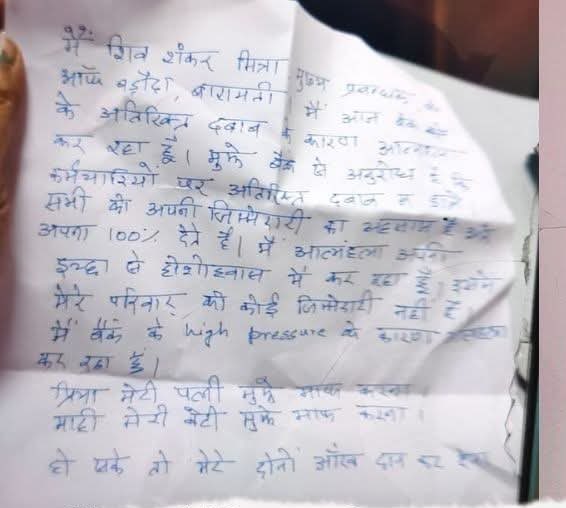 मैं शिव शंकर मित्रा मुख्य प्रबन्धक, बैंक
ऑफ बड़ौदा, बारामती मैं आज बैंक
के अतिरिक्त दबाब के कारण आत्महत्या
कर रहा हूँ। मुझे बैंक से अनुरोध है कि
कर्मचारियों पर अतिरिक्त दबाब न डाले
सभी को अपनी जिम्मेदारी का अहसास है और
अपना 100% देते है। मैं आत्महत्या अपनी
इच्छा से होशोहवास में कर रहा हूँ। इसमें
मेरे परिवार की कोई जिम्मेदारी नहीं है।
मैं बैंक के high pressure के कारण आत्महत्या
कर रहा हूँ।
प्रिया मेरी पत्नी मुझे माफ करना।
माही मेरी बेटी मुझे माफ करना।
हो सके तो मेरे दोनों आँख दान कर देना